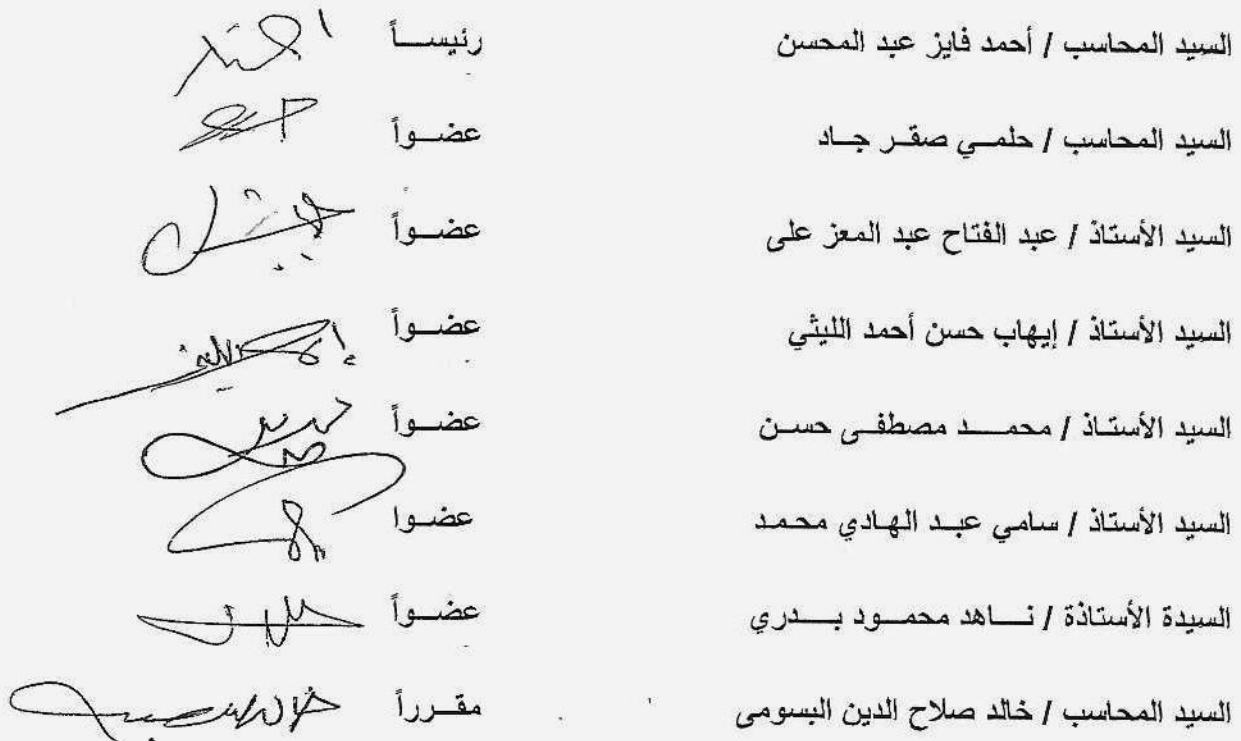 السيد المحاسب / أحمد فايز عبد المحسن رئيســاً
السيد المحاسب / حلمــي صقــر جــاد عضــواً
السيد الأستاذ / عبد الفتاح عبد المعز على عضــواً
السيد الأستاذ / إيهاب حسن أحمد الليثي عضــواً
السيد الأستاذ / محمــــد مصطفــى حســن عضــواً
السيد الأستاذ / سامي عبــد الهـادي محمـد عضــوا
السيدة الأستاذة / نـــاهد محمــود بـــدري عضــواً
السيد المحاسب / خالد صلاح الدين البسومى مقــرراً